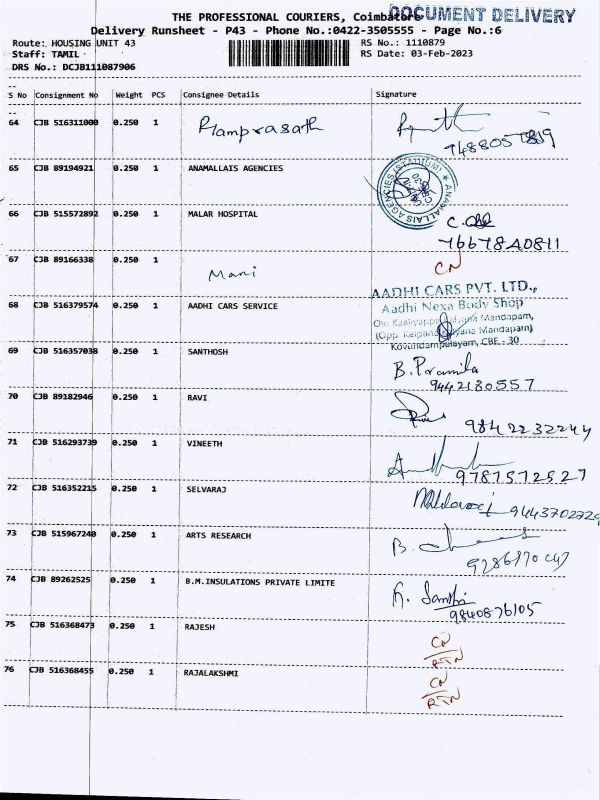 THE PROFESSIONAL COURIERS, Coimbatore
DOCUMENT DELIVERY
Delivery Runsheet - P43 - Phone No.:0422-3505555 - Page No.:6
Route: HOUSING UNIT 43
RS No.: 1110879
Staff: TAMIL
RS Date: 03-Feb-2023
DRS No.: DCJB111087906
S No Consignment No Weight PCS Consignee Details Signature
64 CJB 516311000 0.250 1 Ramprasath
65 CJB 89194921 0.250 1 ANAMALLAIS AGENCIES
ANAMALLAIS AGENCIES (STADIUM) ★
66 CJB 515572892 0.250 1 MALAR HOSPITAL
67 CJB 89166338 0.250 1 Mani CN
68 CJB 516379574 0.250 1 AADHI CARS SERVICE
AADHI CARS PVT. LTD.,
Aadhi Nexa Body Shop
Mandapam,
Mandapam)
Kovundampalayam, CBE - 30
69 CJB 516357038 0.250 1 SANTHOSH B. Pramila
9442180557
70 CJB 89182946 0.250 1 RAVI 9842232244
71 CJB 516293739 0.250 1 VINEETH
9787572527
72 CJB 516352215 0.250 1 SELVARAJ 9443702729
73 CJB 515967240 0.250 1 ARTS RESEARCH B.
74 CJB 89262525 0.250 1 B.M.INSULATIONS PRIVATE LIMITE
9840876105
75 CJB 516368473 0.250 1 RAJESH CN
RTN
76 CJB 516368455 0.250 1 RAJALAKSHMI CN
RTN